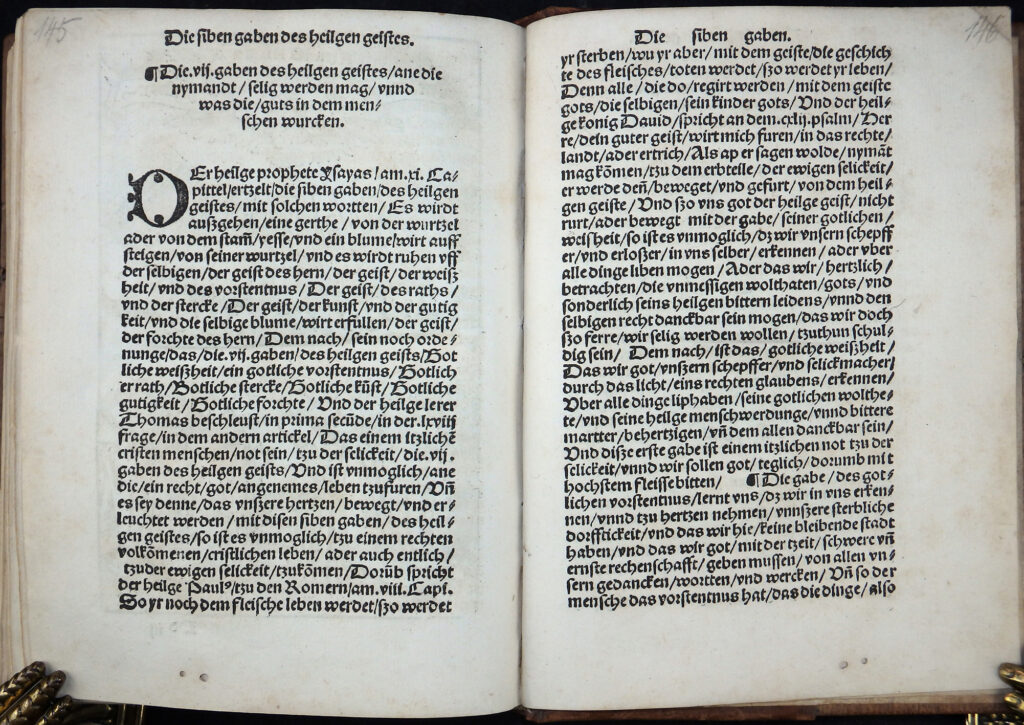 145
Die siben gaben des heilgen geistes.
¶Die.vij.gaben des heilgen geistes/ane die
nymandt/selig werden mag/vnnd
was die/guts in dem men-
schen wurcken.
DEr heilge prophete Ysayas/am.xi.Ca-
pittel/ertzelt/die siben gaben/des heilgen
geistes/mit solchen wortten/Es wirdt
außgehen/eine gerthe/von der wurtzel
ader von dem stam̄/yesse/vnd ein blume/wirt auff
steigen/von seiner wurtzel/vnd es wirdt ruhen vff
der selbigen/der geist des hern/der geist/der weiß
heit/vnd des vorstentnus/Der geist/des raths/
vnd der stercke/Der geist/der kunst/vnd der gutig
keit/vnd die selbige blume/wirt erfullen/der geist/
der forchte des hern/Dem nach/sein noch orde-
nunge/das/die.vij.gaben/des heilgen geists/Got
liche weißheit/ein gotliche vorstentnus/Gotlich
er rath/Gotliche stercke/Gotliche kūst/Gotliche
gutigkeit/Gotliche forchte/Vnd der heilge lerer
Thomas beschleust/in prima secūde/in der.lxviij
frage/in dem andern artickel/Das einem itzlichē
cristen menschen/not sein/tzu der selickeit/die.vij.
gaben des heilgen geists/Vnd ist vnmoglich/ane
die/ein recht/got/angenemes/leben tzufuren/Vn̄
es sey denne/das vnszere hertzen/bewegt/vnd er-
leuchtet werden/mit disen siben gaben/des heil-
gen geistes/so ist es vnmoglich/tzu einem rechten
volkōmenen/cristlichen leben/ader auch entlich/
tzu der ewigen selickeit/tzukōmen/Dorūb spricht
der heilge Paulꝰ/tzu den Romern/am.viii.Capi.
So yr noch dem fleische leben werdet/szo werdet
146
Die siben gaben.
yr sterben/wu yr aber/mit dem geiste/die geschich
te des fleisches/toten werdet/szo werdet yr leben/
Denn alle/die do/regirt werden/mit dem geiste
gots/die selbigen/sein kinder gots/Vnd der heil-
ge konig Dauid/spricht an dem.cxlij.psalm/Her
re/dein guter geist/wirt mich furen/in das rechte/
landt/ader ertrich/Als ap er sagen wolde/nymāt
mag kōmen/tzu dem erbteile/der ewigen selickeit/
er werde den̄/beweget/vnd gefurt/von dem heil-
gen geiste/Vnd szo vns got der heilge geist/nicht
rurt/ader bewegt mit der gabe/seiner gotlichen/
weisheit/so ist es vnmoglich/dz wir vnsern schepff
er/vnd erloszer/in vns selber/erkennen/ader vber
alle dinge liben mogen/Ader das wir/hertzlich/
betrachten/die vnmessigen wolthaten/gots/vnd
sonderlich seins heilgen bittern leidens/vnnd den
selbigen recht danckbar sein mogen/das wir doch
szo ferre/wir selig werden wollen/tzuthun schul-
dig sein/Dem nach/ist das/gotliche weißheit/
Das wir got/vnszern schepffer/vnd selickmacher/
durch das licht/eins rechten glaubens/erkennen/
Vber alle dinge liphaben/seine gotlichen wolthe-
te/vnd seine heilge menschwerdunge/vnnd bittere
martter/behertzigen/vn̄ dem allen danckbar sein/
Vnd disze erste gabe ist einem itzlichen not tzu der
selickeit/vnnd wir sollen got/teglich/dorumb mit
hochstem fleisse bitten/ ¶Die gabe/des got-
lichen vorstentnus/lernt vns/dz wir in vns erken-
nen/vnnd tzu hertzen nehmen/vnnszere sterbliche
dorfftickeit/vnd das wir hie/keine bleibende stadt
haben/vnd das wir got/mit der tzeit/schwere vn̄
ernste rechenschafft/geben mussen/von allen vn-
sern gedancken/wortten/vnd wercken/Vn̄ so der
mensche das vorstentnus hat/das die dinge/also